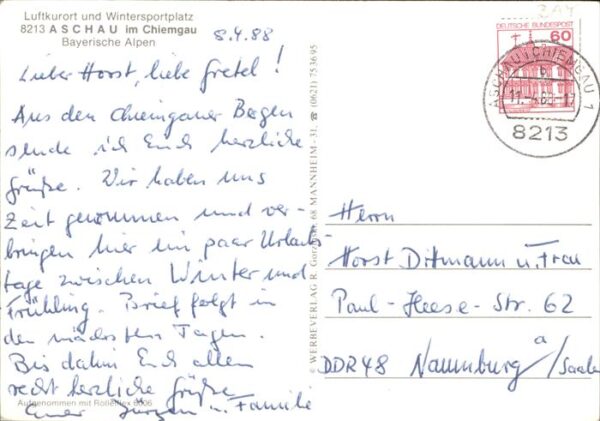 Luftkurort und Wintersportplatz
8213 ASCHAU im Chiemgau
Bayerische Alpen
8.4.88
Lieber Horst, liebe Gretel!
Aus den Chiemgauer Bergen
sende ich Euch herzliche
Grüße. Wir haben uns
Zeit genommen und ver-
bringen hier ein paar Urlaubs-
tage zwischen Winter und
Frühling. Brief folgt in
den nächsten Tagen.
Bis dahin Euch allen
recht herzliche Grüße
Euer Jürgen u. Familie
Aufgenommen mit Rolleiflex 6006
© WERBEVERLAG R. 68 MANNHEIM - 31, ☎ (0621) 753695
DEUTSCHE BUNDESPOST
60
ASCHAU i. CHIEMGAU 1
b
11.-4.88-17
8213
Herrn
Horst Dittmann u. Frau
Paul-Heese-Str. 62
DDR 48 Naumburg a/Saale